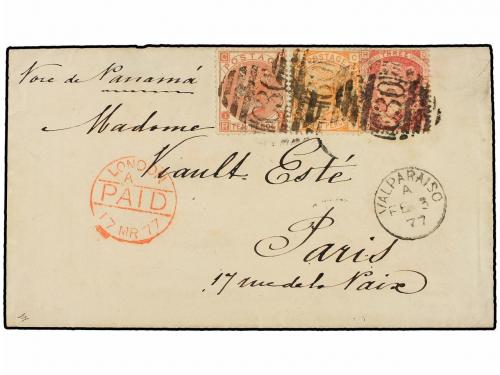 Voie de Panamá
POSTAGE
POSTAGE
THREE
C30
C30
C30
Madame
Viault Esté
LONDON
A
PAID
17 MR 77
VALPARAISO
A
77
Paris
17 rue de la Paix